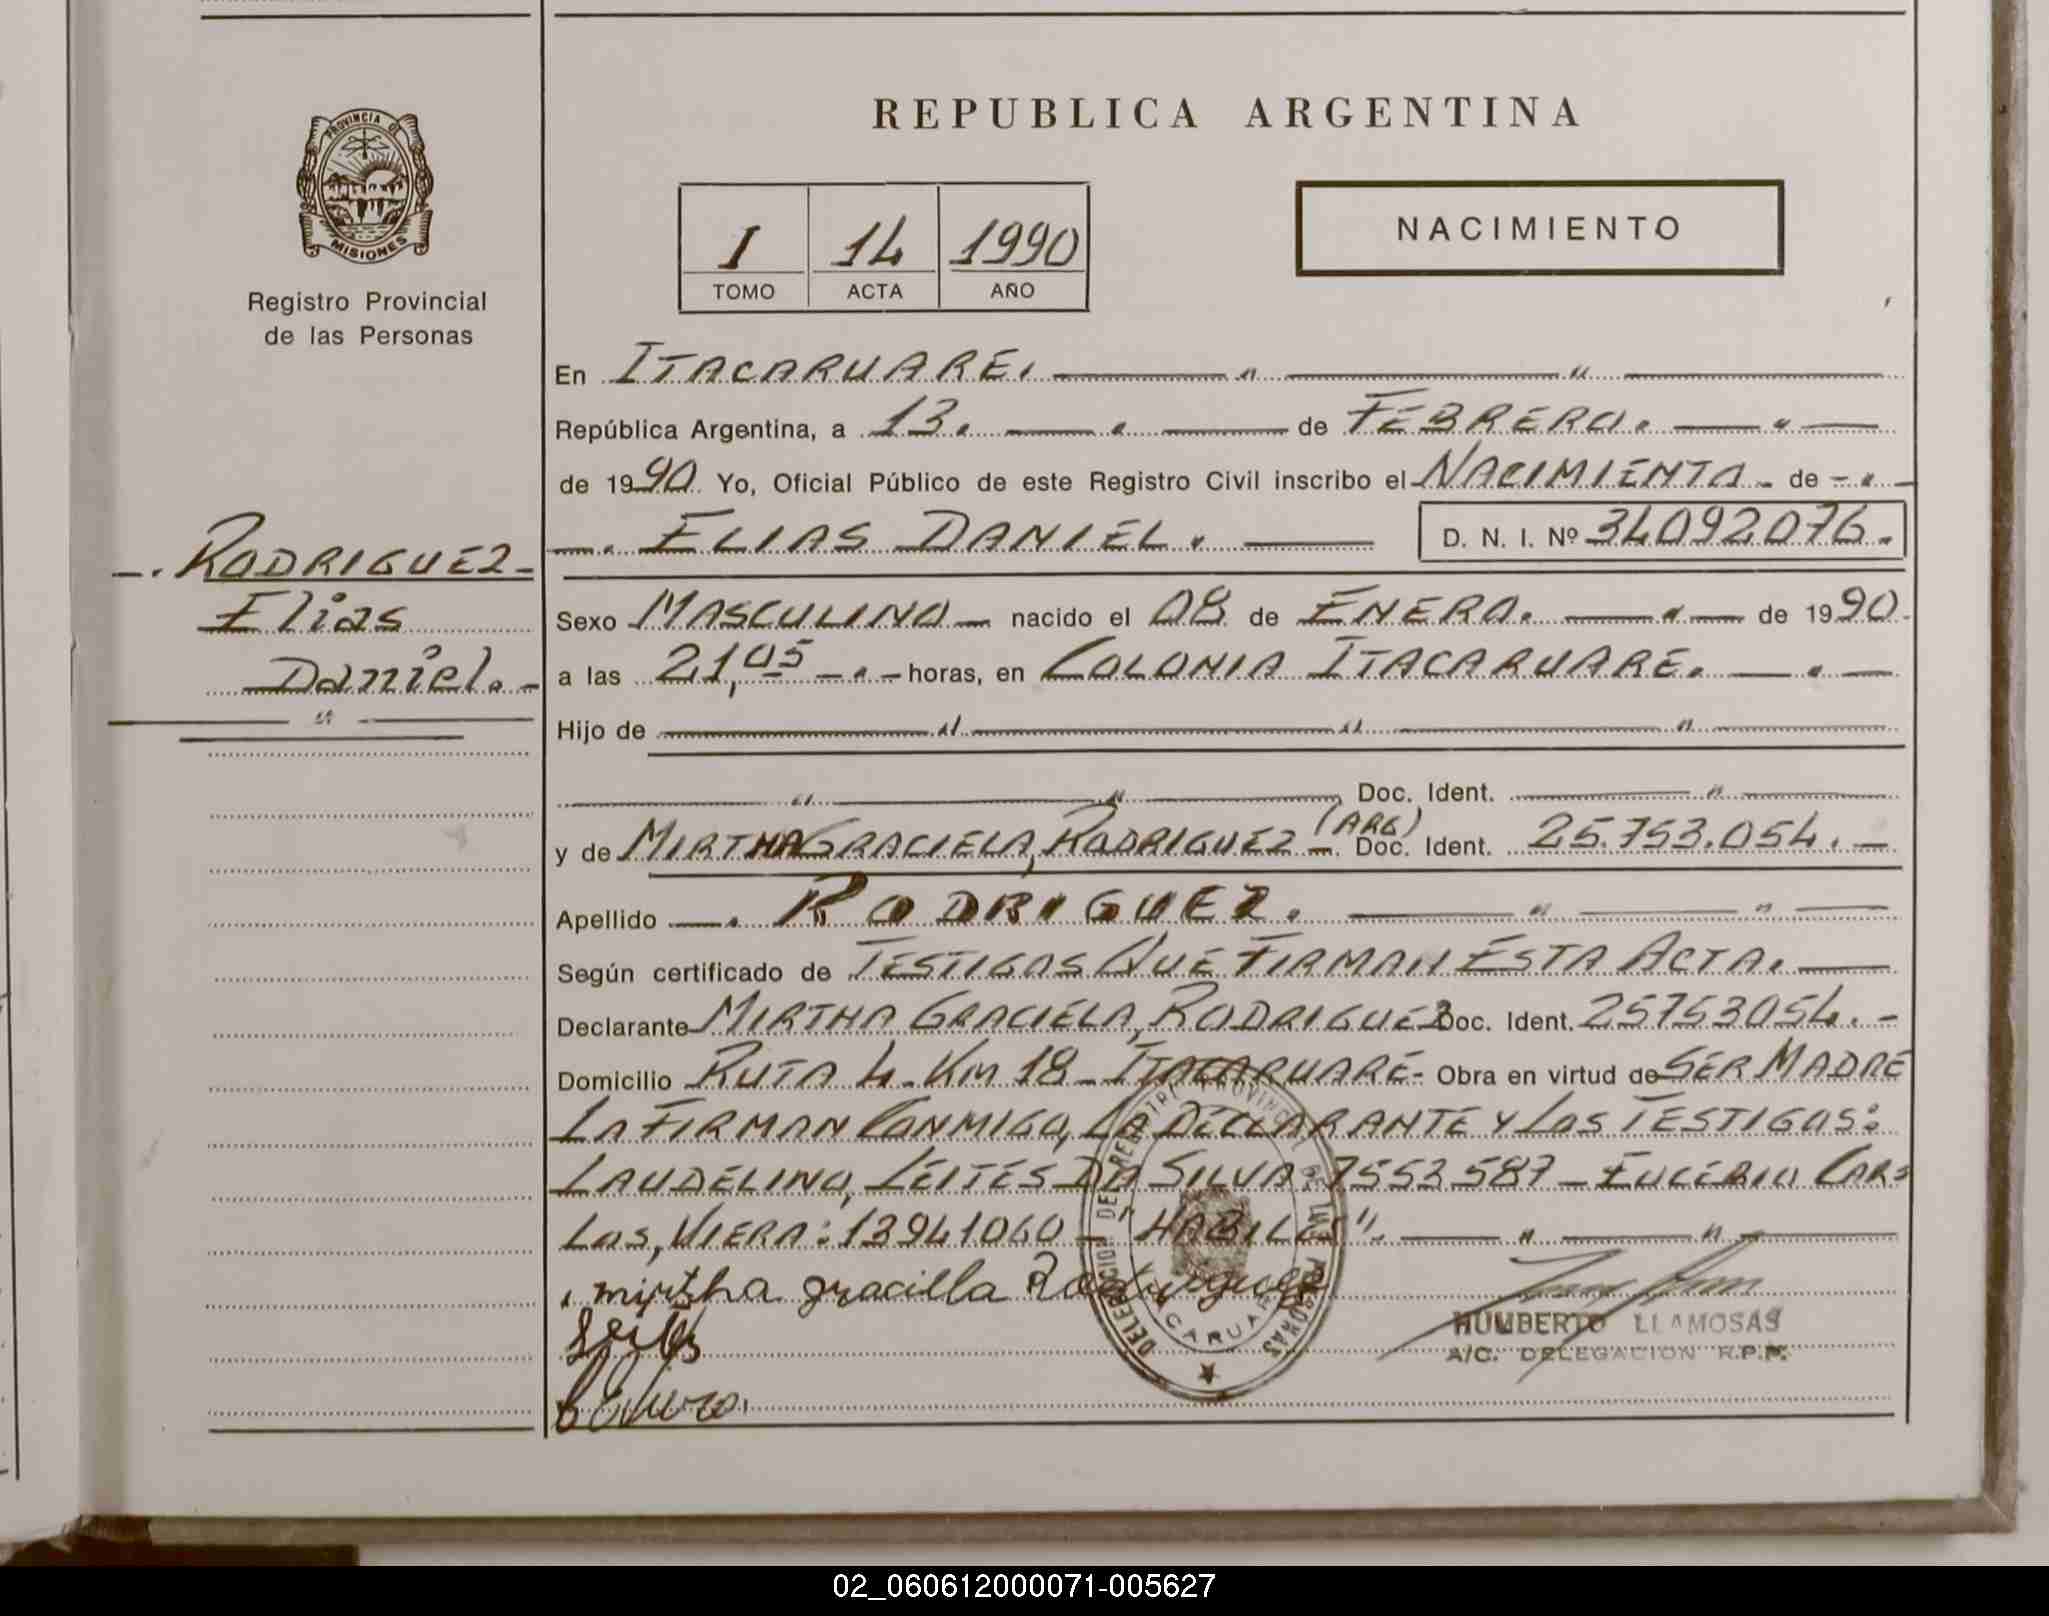 REPUBLICA ARGENTINA
PROVINCIA DE
MISIONES
Registro Provincial
de las Personas
I 14 1990
TOMO ACTA AÑO
NACIMIENTO
En ITACARUARE.
República Argentina, a 13. de FEBRERO.
de 1990. Yo, Oficial Público de este Registro Civil inscribo el NACIMIENTO de
ELIAS DANIEL. D. N. I. Nº 34092076.
RODRIGUEZ
Elias
Daniel.
Sexo MASCULINO nacido el 08 de ENERO. de 1990
a las 21,05 horas, en COLONIA ITACARUARE.
Hijo de
Doc. Ident.
y de MIRTHA GRACIELA, RODRIGUEZ (ARG) Doc. Ident. 25.753.054.
Apellido RODRIGUEZ.
Según certificado de TESTIGOS QUE FIRMAN ESTA ACTA.
Declarante MIRTHA GRACIELA, RODRIGUEZ Doc. Ident. 25753054.
Domicilio RUTA 4 - KM 18 - ITACARUARE - Obra en virtud de SER MADRE
LA FIRMAN CONMIGO, LA DECLARANTE Y LOS TESTIGOS:
LAUDELINO, LEITES DA SILVA: 7553587 - EUCEBIO CAR-
LOS, VIERA: 13941060 - "HABILES".
mirtha gracilla Rodriguez
HUMBERTO LLAMOSAS
A/C. DELEGACION R.P.P.
02_060612000071-005627